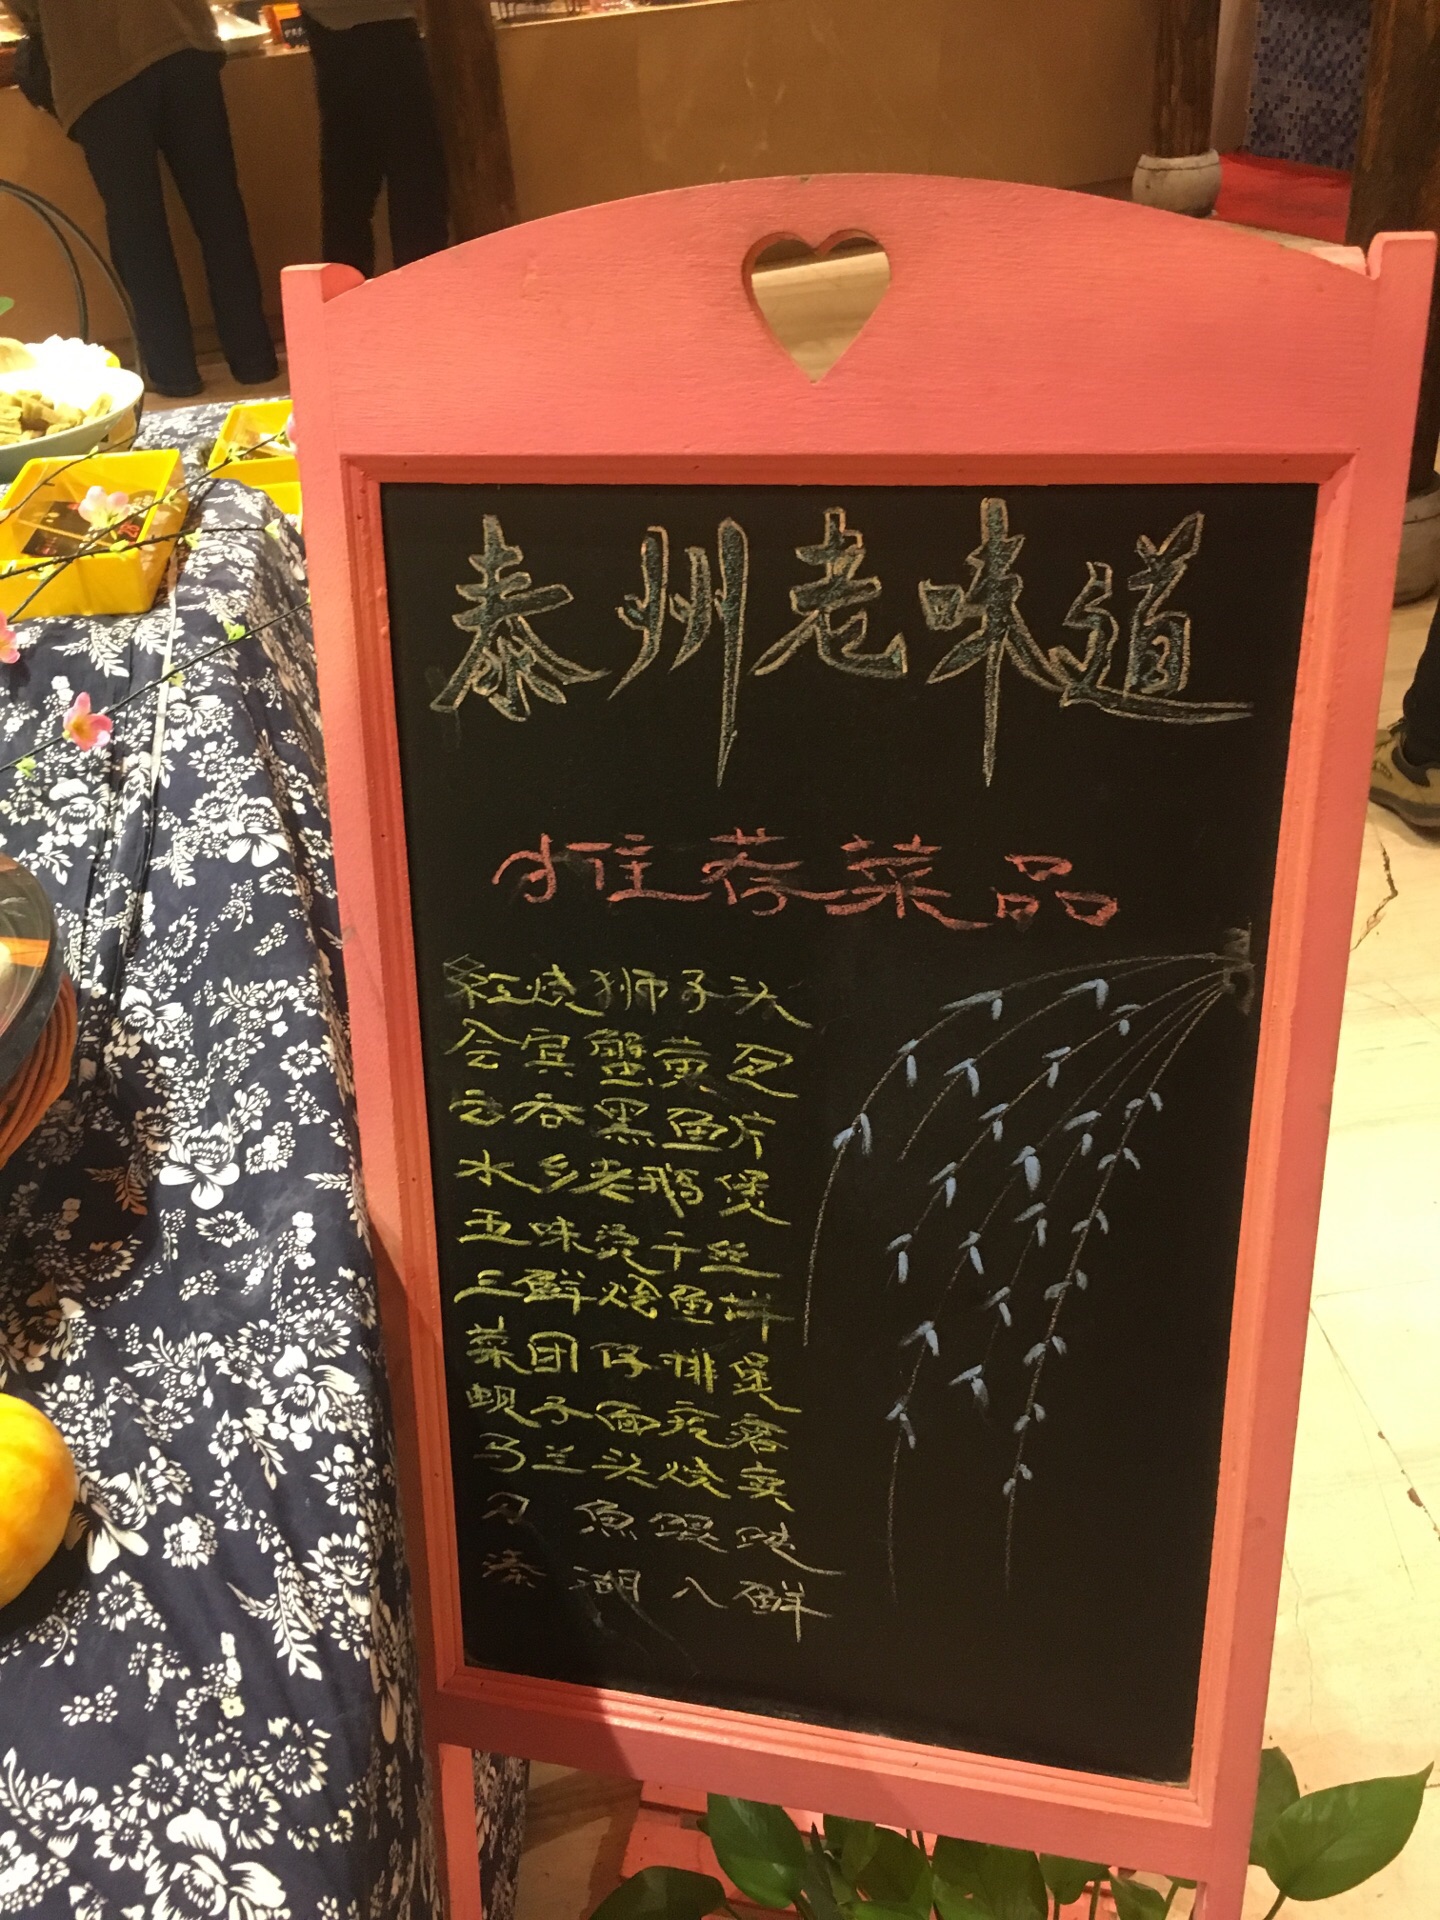 泰州老味道
推荐菜品
红烧狮子头
会宾蟹黄包
云吞黑鱼片
水乡老鹅煲
五味烫干丝
三鲜烧鱼饼
菜团仔排煲
蚬子面疙瘩
马兰头烧卖
刀鱼馄饨
溱湖八鲜